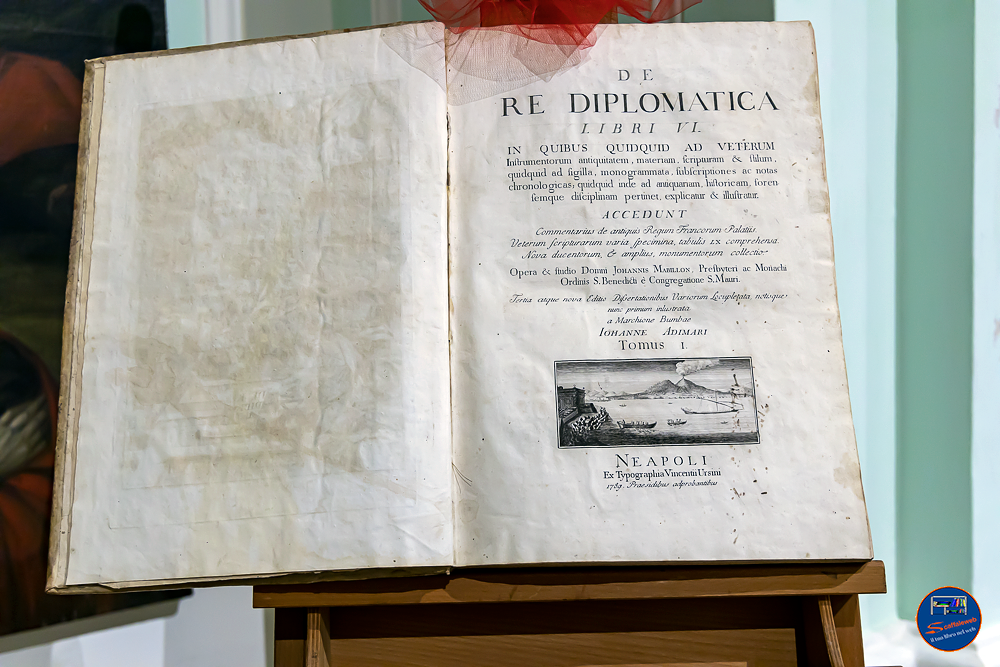 DE
RE DIPLOMATICA
LIBRI VI.
IN QUIBUS QUIDQUID AD VETERUM
Instrumentorum antiquitatem, materiam, scripturam & stilum,
quidquid ad sigilla, monogrammata, subscriptiones ac notas
chronologicas; quidquid inde ad antiquariam, historicam, foren
semque disciplinam pertinet, explicatur & illustratur.
ACCEDUNT
Commentarius de antiquis Regum Francorum Palatiis
Veterum scripturarum varia specimina, tabulis LX comprehensa.
Nova ducentorum, & amplius, monumentorum collectio.
Opera & studio Domni JOHANNIS MABILLON, Presbyteri ac Monachi
Ordinis S. Benedicti è Congregatione S. Mauri.
Tertia atque nova Editio Dissertationibus Variorum Locupletata, notisque
nunc primum inlustrata
a Marchione Bumbae
IOHANNE ADIMARI
Tomus I.
NEAPOLI
Ex Typographia Vincentii Ursini
1789. Praesidibus adprobantibus
Scaffaleweb
il tuo libro nel web